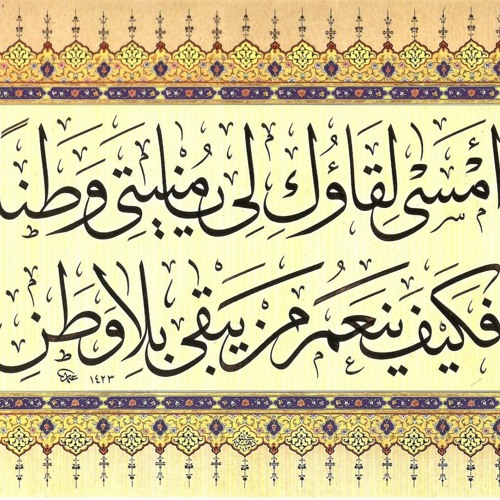 أَمْسَى لِقَاؤُكَ لِي مُنْيَتِي وَطَنًا
فَكَيْفَ يَنْعَمُ مَنْ يَبْقَى بِلَا وَطَنِ
١٤٢٣